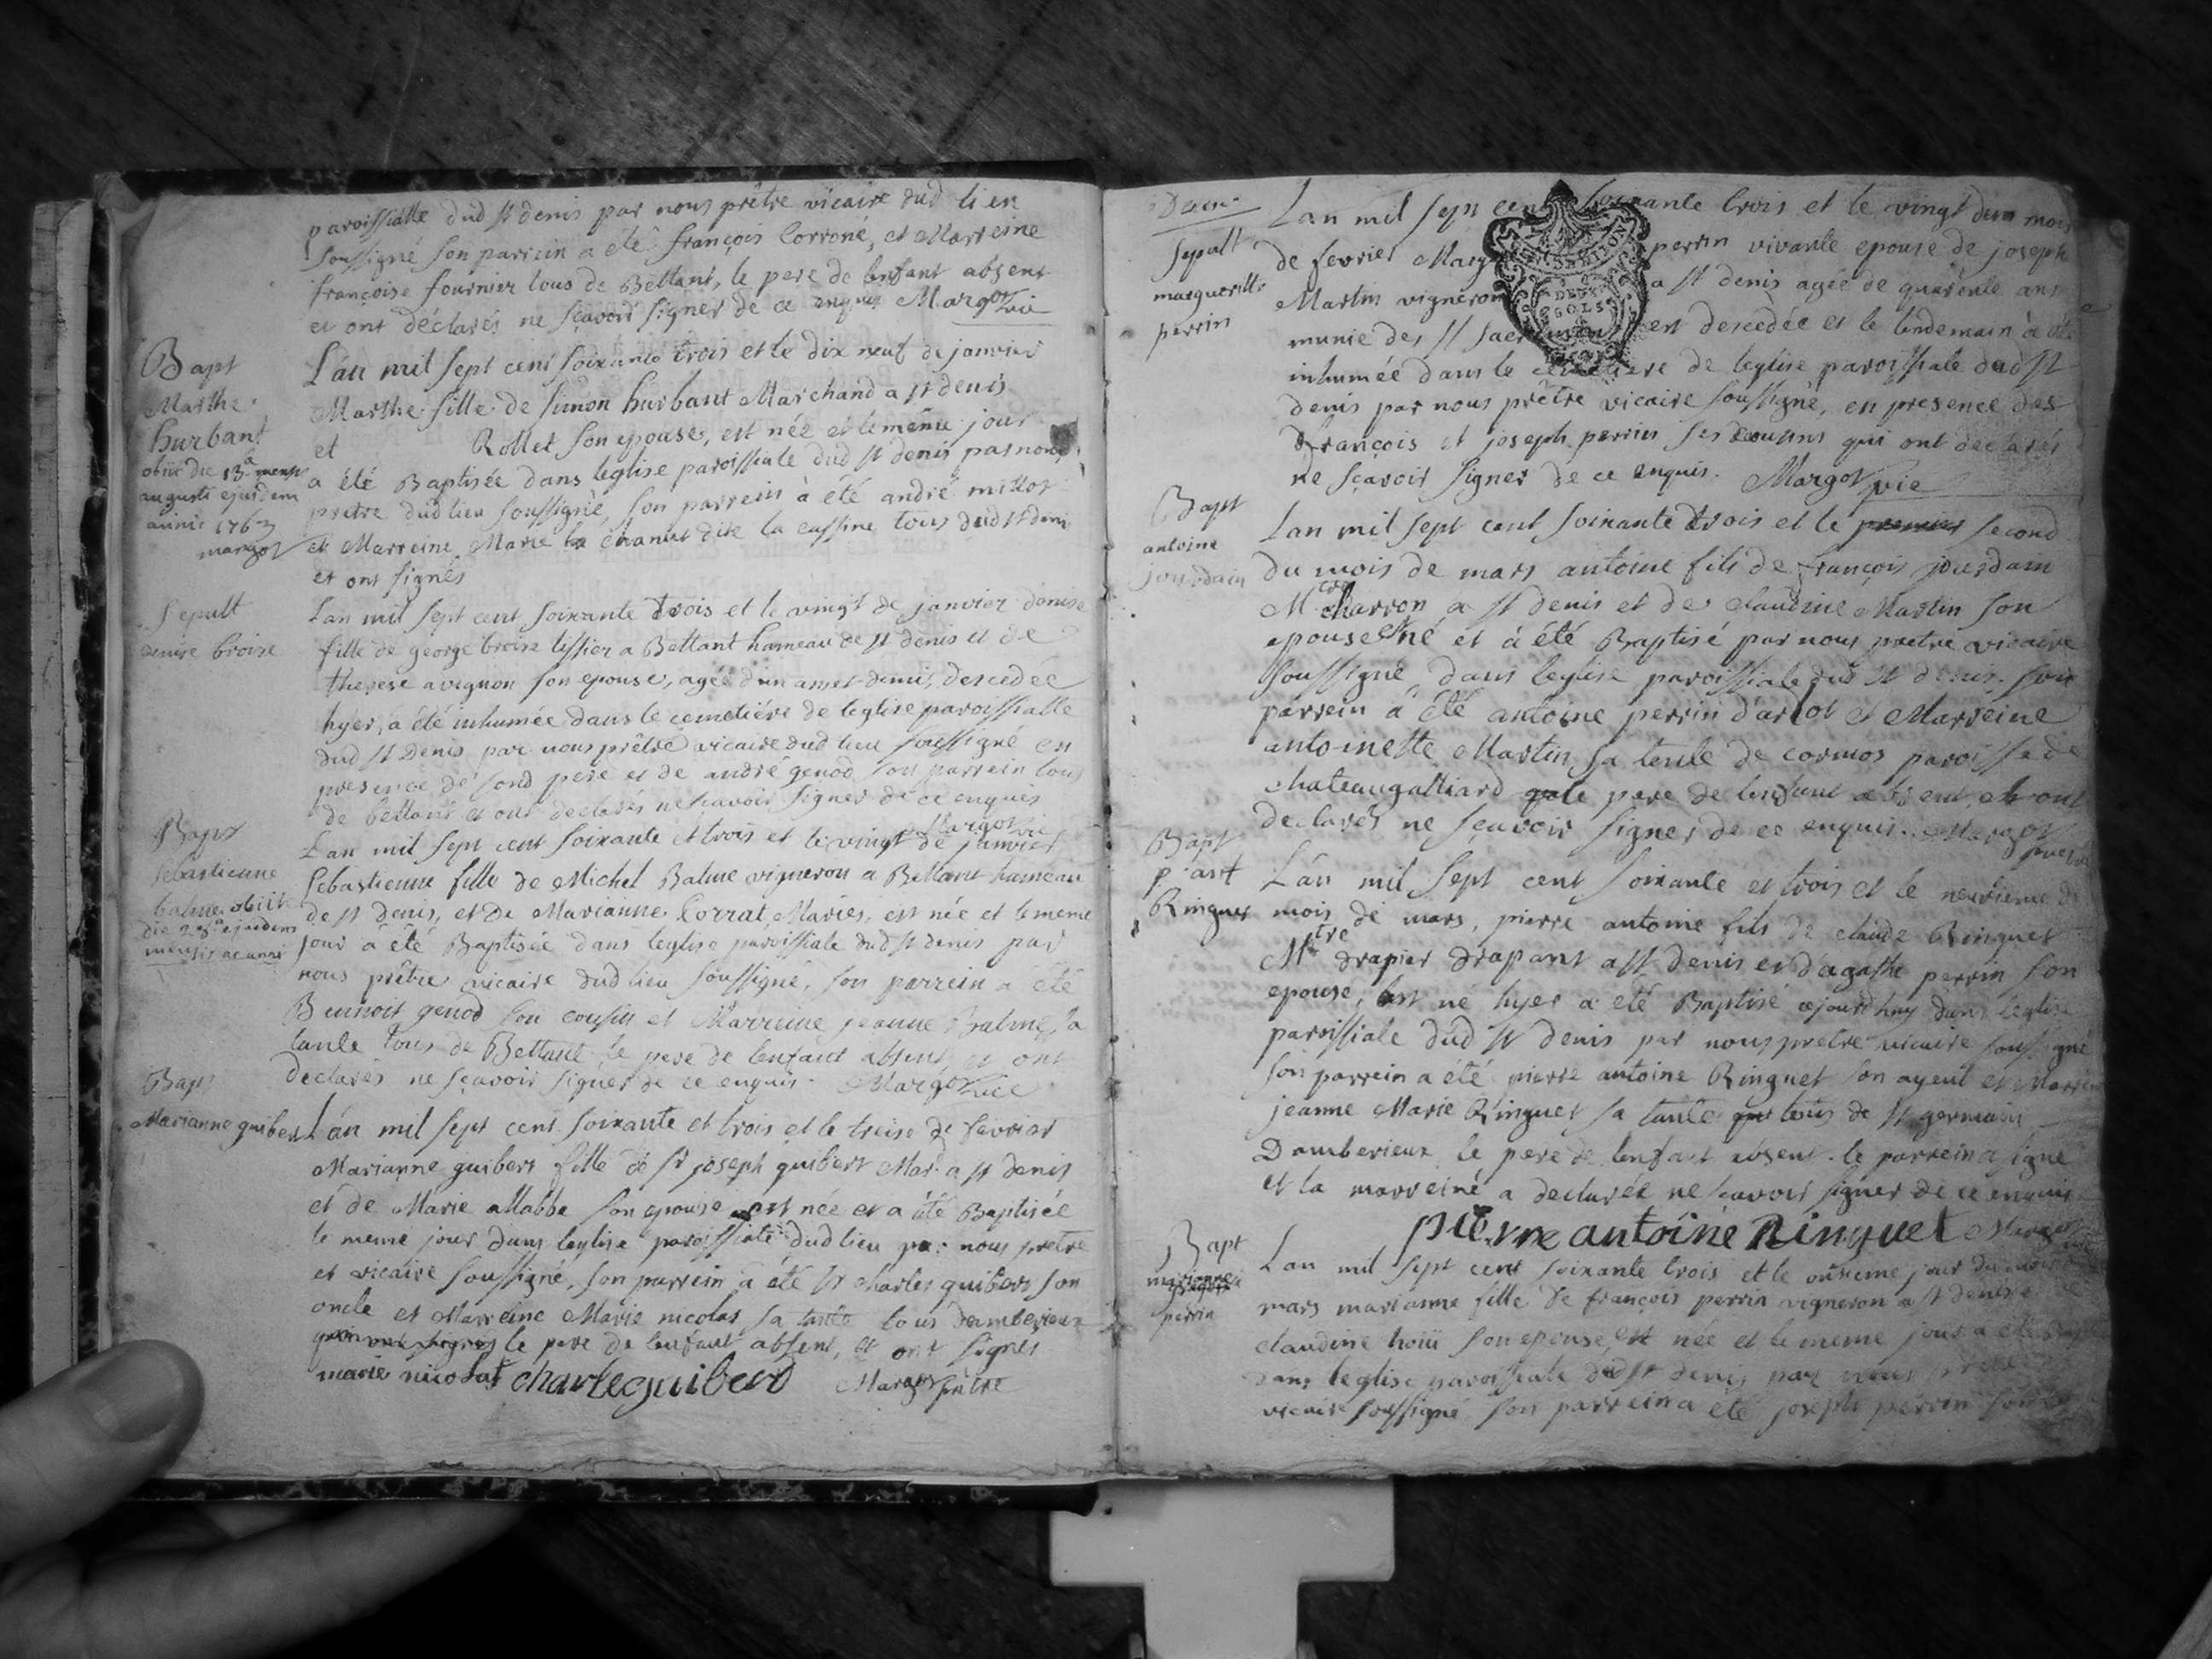 paroissialle dud st denis par nous prêtre vicaire dud lieu
soussigné son parrein a été françois Corroné, et Marreine
françoise fournier tous de Bettant, le pere de lenfant absent
et ont déclarés ne sçavoir signer de ce enquis Margot vic
Bapt
Marthe
hurbant
obiit die 13a mensis
augusti ejusdem
anni 1763
margot
Lân mil sept cent soixante trois et le dix neuf de janvier
Marthe fille de simon hurbant Marchand a st denis
et Rollet son epouse, est née et le même jour
a été Baptisée dans leglise paroissiale dud st denis par nous
pretre dud lieu soussigné, son parrein à été andré millot
et Marreine Marie la chanut dite la cassine tous dud st denis
et ont signés
Sepult
denise broise
Lan mil sept cent soixante trois et le vingt de janvier denise
fille de george broise tissier a Bettant hameau de st denis et de
therese avignon son epouse, agée d'un an et demi, descedée
hyer, a été inhumée dans le cemetiére de leglise paroissialle
dud st Denis par nous prêtre vicaire dud lieu soussigné en
presence de sond pere et de andré genod son parrein tous
de bettant et ont declarés ne sçavoir signer de ce enquis
Margot vic
Bapt
sebastienne
balme obiit
die 28a ejusdem
mensis ac anni
Lan mil sept cent soixante et trois et le vingt de janvier
Sebastienne fille de Michel Balme vigneron a Bettant hameau
de st denis, et de Marianne Corral Mariés, est née et le meme
jour a été Baptisée dans leglise paroissiale dud st denis par
nous prêtre vicaire dud lieu soussigné, son parrein a été
Bennoit genod son cousin et Marreine jeanne Balme, sa
tante tous de Bettant le pere de lenfant absent, et ont
declarés ne sçavoir signer de ce enquis. Margot vic
Bapt
Marianne guibert
Lán mil sept cent soixante et trois et le treise de fevrier
Marianne guibert fille de sr joseph guibert Mard a st denis
et de Marie Mabbe son epouse est née et a été Baptisée
le meme jour dans leglise paroissiale dud lieu par nous pretre
et vicaire soussigné, son parrein a été sr charles guibert son
oncle et Marreine Marie nicolas sa tante tous damberieux
le pere de lenfant absent, et ont signés
marie nicolat charle guiberd Margot prêtre
Sepult
margueritte
perrin
Lan mil sept cent soixante trois et le vingt deux mois
de fevrier Marg perrin vivante epouse de joseph
Martin vigneron a st denis agée de quarente ans
munie des ss sacrements est descedée et le lendemain à été
inhumée dans le cemetiere de leglise paroissiale dud st
denis par nous prêtre vicaire soussigné, en presence des
françois et joseph perrin ses cousins qui ont declarés
ne sçavoir signer de ce enquis. Margot vic
Bapt
antoine
jourdain
Lan mil sept cent soixante trois et le premier second
du mois de mars antoine fils de françois jourdain
Mtre charron a st denis et de claudine Martin son
epouse est né et à été Baptisé par nous pretre vicaire
soussigné dans leglise paroissiale dud st denis. son
parrein a été antoine perrin d'arlot et Marreine
antoinette Martin sa tente de cormos paroisse de
chateaugalliard le pere de lenfant absent, et ont
declarés ne sçavoir signer de ce enquis. Margot
pretre
Bapt
p. ant
Ringuet
Lán mil sept cent soixante et trois et le neuvieme du
mois de mars, pierre antoine fils de claude Ringuet
Mtre drapier drapant a st denis et d'agathe perrin son
epouse, est né hyer a été Baptisé cejourdhuy dans leglise
paroissiale dud st denis par nous pretre vicaire soussigné
son parrein a été pierre antoine Ringuet son ayeul et Marreine
jeanne Marie Ringuet sa tante tous de st germain
Damberieux le pere de lenfant absent. le parrein a signé
et la marreine a declarée ne sçavoir signer de ce enquis
pierre antoine Ringuet Margot
Bapt
marianne
perrin
Lan mil sept cent soixante trois et le onsieme jour du mois
mars marianne fille de françois perrin vigneron a st denis
claudine hoiü son epouse, est née et le meme jour a été
dans leglise paroissiale dud st denis par nous prêtre
vicaire soussigné son parrein a été joseph perrin son